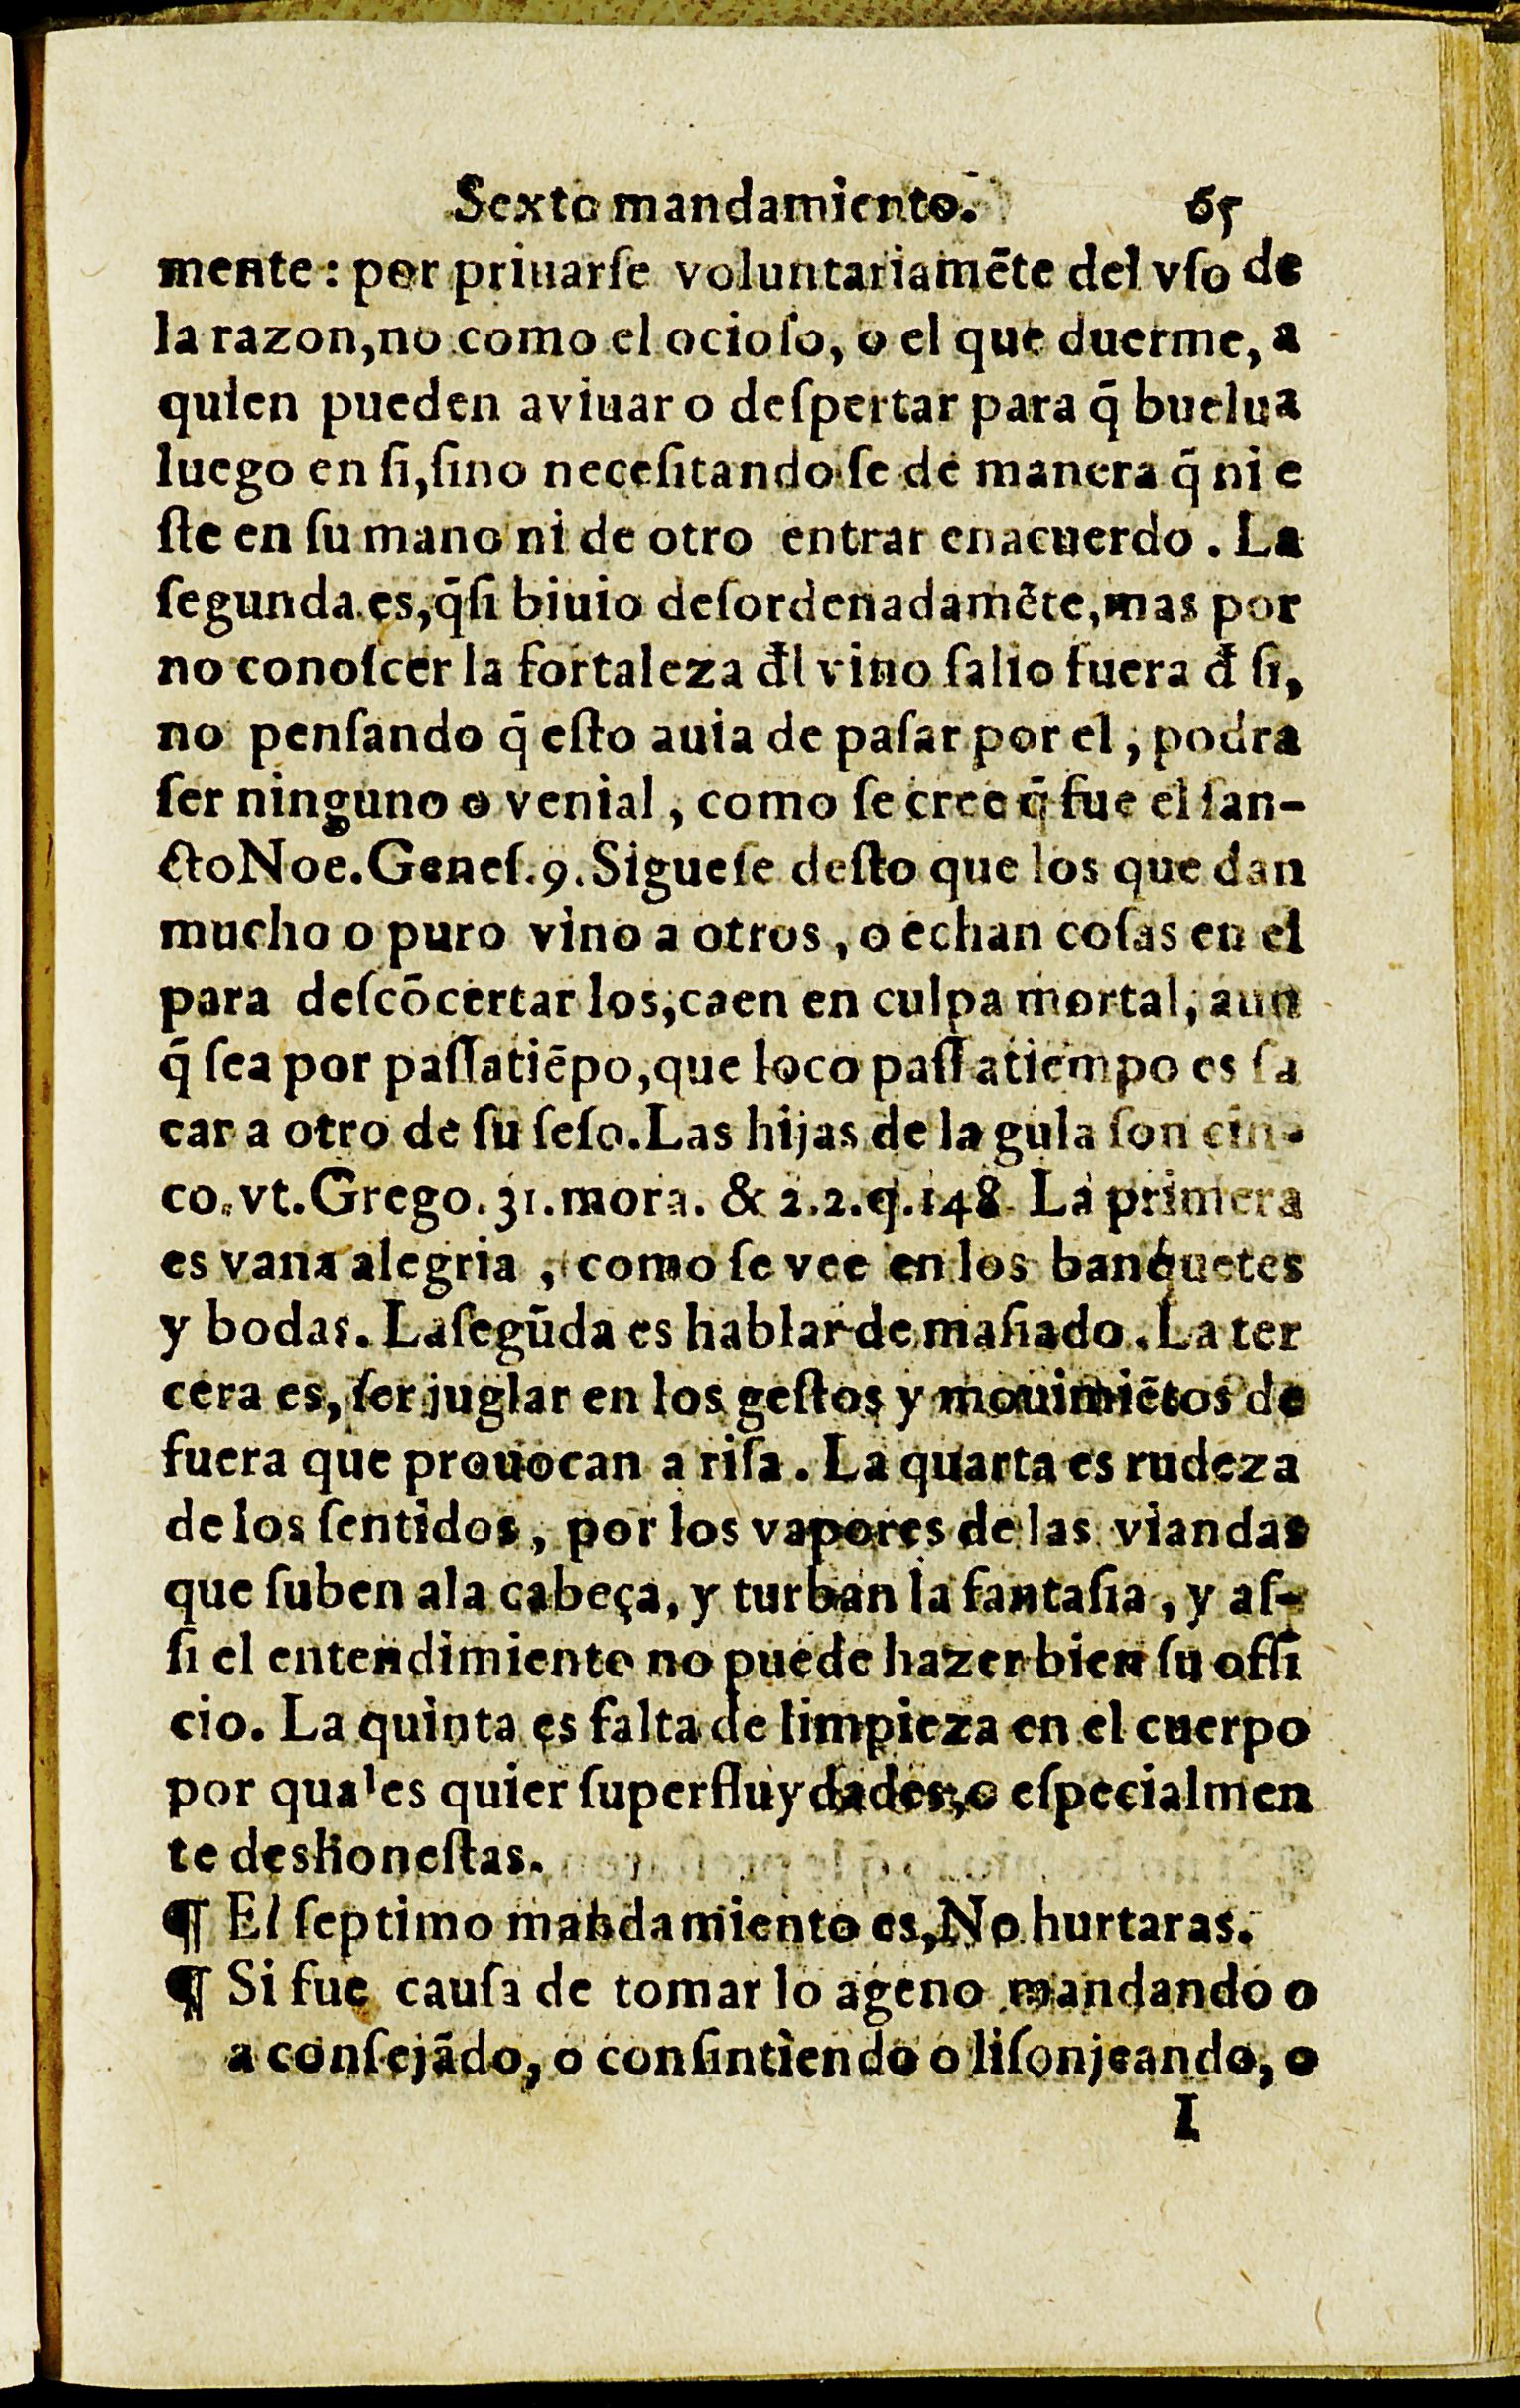 Sexto mandamiento. 65
mente: por priuarſe voluntariamẽte del vſo de
la razon,no como el ocioſo, o el que duerme, a
quien pueden aviuar o deſpertar para q̃ buelua
luego en ſi,ſino neceſitando ſe de manera q̃ ni e
ſte en ſu mano ni de otro entrar enacuerdo. La
ſegunda es,q̃ſi biuio deſordenadamẽte,mas por
no conoſcer la fortaleza đl vino ſalio fuera đ ſi,
no penſando q̃ eſto auia de paſar por el, podra
ſer ninguno o venial, como ſe cree q̃ fue el ſan-
ctoNoe.Geneſ.9.Sigueſe deſto que los que dan
mucho o puro vino a otros, o echan coſas en el
para deſcõcertar los,caen en culpa mortal, aun
q̃ ſea por paſſatiẽpo,que loco paſſatiempo es ſa
car a otro de ſu ſeſo.Las hijas de la gula ſon cin-
co.vt.Grego.31.mora. & 2.2.q.148. La primera
es vana alegria, como ſe vee en los banquetes
y bodas. Laſegũda es hablar demaſiado. La ter
cera es, ſer juglar en los geſtos y mouimiẽtos de
fuera que prouocan a riſa. La quarta es rudeza
de los ſentidos, por los vapores de las viandas
que ſuben ala cabeça, y turban la fantaſia, y aſ-
ſi el entendimiento no puede hazer bien ſu offi
cio. La quinta es falta de limpieza en el cuerpo
por quales quier ſuperfluydades,o eſpecialmen
te deshoneſtas.
¶ El ſeptimo mandamiento es,No hurtaras.
¶ Si fue cauſa de tomar lo ageno mandando o
a conſejãdo, o conſintiendo o liſonjeando, o
I